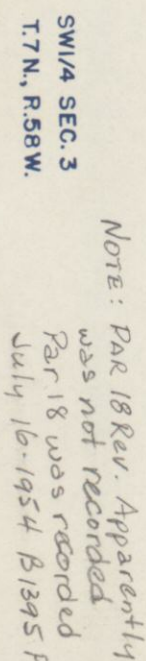 SW1/4 SEC. 3
T.7 N., R.58 W.
NOTE: PAR 18 Rev. Apparently
was not recorded
Par. 18 was recorded
July 16-1954 B1395 P